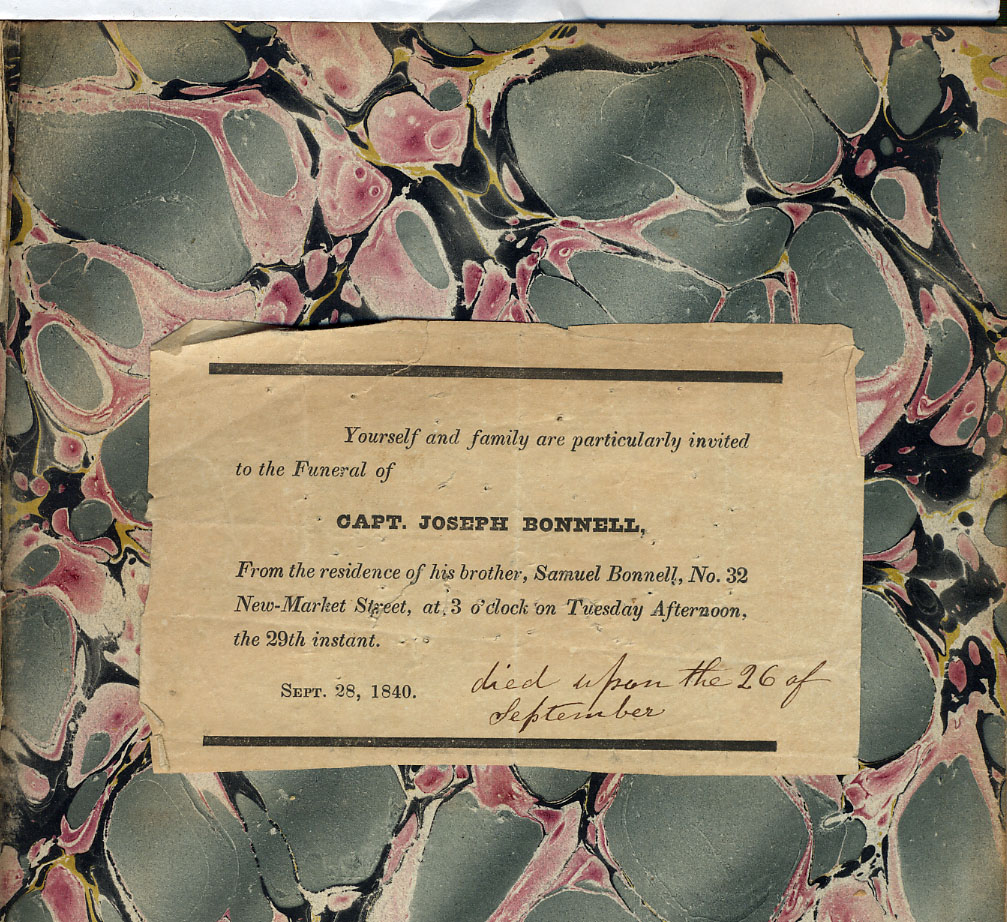 Yourself and family are particularly invited
to the Funeral of
CAPT. JOSEPH BONNELL,
From the residence of his brother, Samuel Bonnell, No. 32
New-Market Street, at 3 o'clock on Tuesday Afternoon,
the 29th instant.
SEPT. 28, 1840.
died upon the 26 of
September